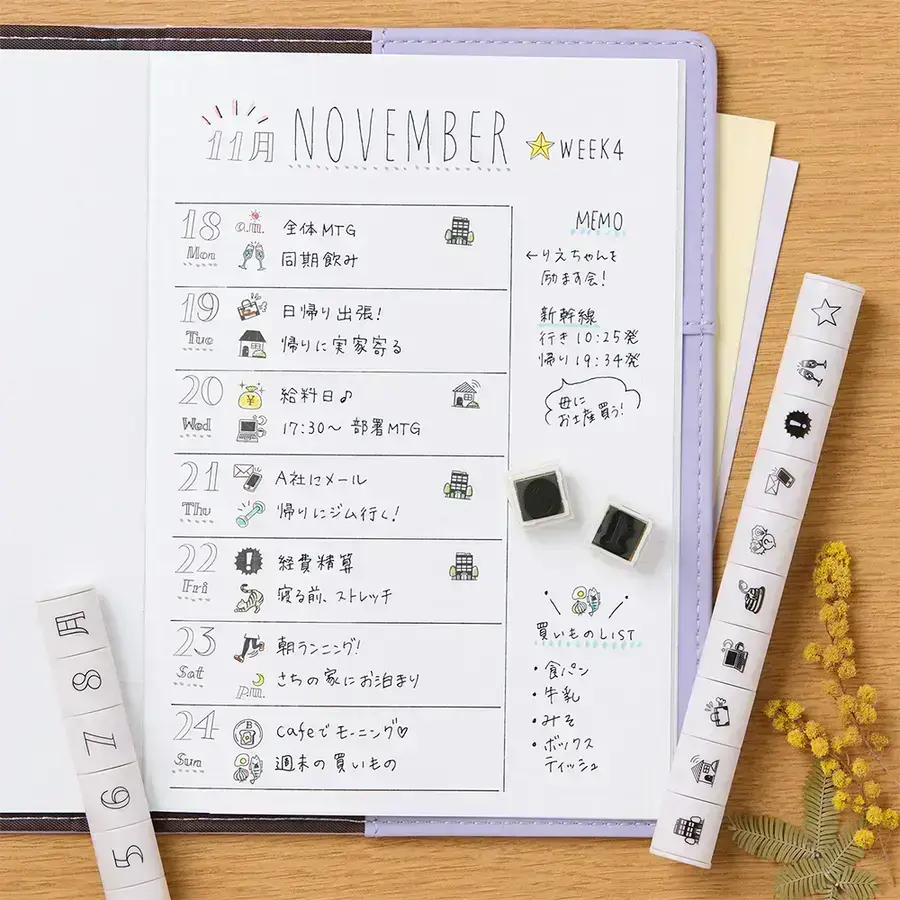 11月 NOVEMBER ★WEEK4
18 a.m. 全体MTG
Mon 同期飲み
19 日帰り出張!
Tue 帰りに実家寄る
20 ¥ 給料日♪
Wed 17:30〜 部署MTG
21 A社にメール
Thu 帰りにジム行く!
22 ! 経費精算
Fri 寝る前、ストレッチ
23 朝ランニング!
Sat p.m. さちの家にお泊まり
24 B Cafeでモーニング♡
Sun 週末の買いもの
MEMO
←りえちゃんを
励ます会!
新幹線
行き10:25発
帰り19:34発
母に
お土産買う!
買いものLIST
・食パン
・牛乳
・みそ
・ボックス
ティッシュ
月
8
7
6
5
!